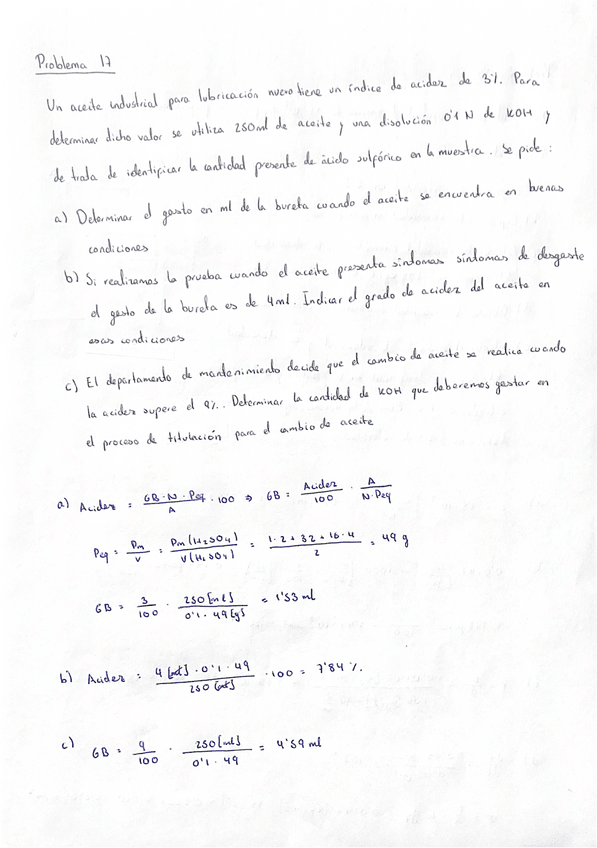 Problema 17
Un aceite industrial para lubricación nuevo tiene un índice de acidez de 3%. Para
determinar dicho valor se utiliza 250ml de aceite y una disolución 0'1 N de KOH y
de trata de identificar la cantidad presente de ácido sulfúrico en la muestra. Se pide:
a) Determinar el gasto en ml de la bureta cuando el aceite se encuentra en buenas
condiciones
b) Si realizamos la prueba cuando el aceite presenta síntomas síntomas de desgaste
el gasto de la bureta es de 4ml. Indicar el grado de acidez del aceite en
esas condiciones
c) El departamento de mantenimiento decide que el cambio de aceite se realice cuando
la acidez supere el 9%. Determinar la cantidad de KOH que deberemos gastar en
el proceso de titulación para el cambio de aceite
a) Acidez = GB·N·Peq / A · 100 ⇒ GB = Acidez / 100 · A / N·Peq
Peq = Pm / V = Pm (H₂SO₄) / V (H₂SO₄) = 1·2 + 32 + 16·4 / 2 = 49 g
GB = 3 / 100 · 250 [ml] / 0'1 · 49 [g] = 1'53 ml
b) Acidez = 4 [ml] · 0'1 · 49 / 250 [ml] · 100 = 7'84 %.
c) GB = 9 / 100 · 250 [ml] / 0'1 · 49 = 4'59 ml